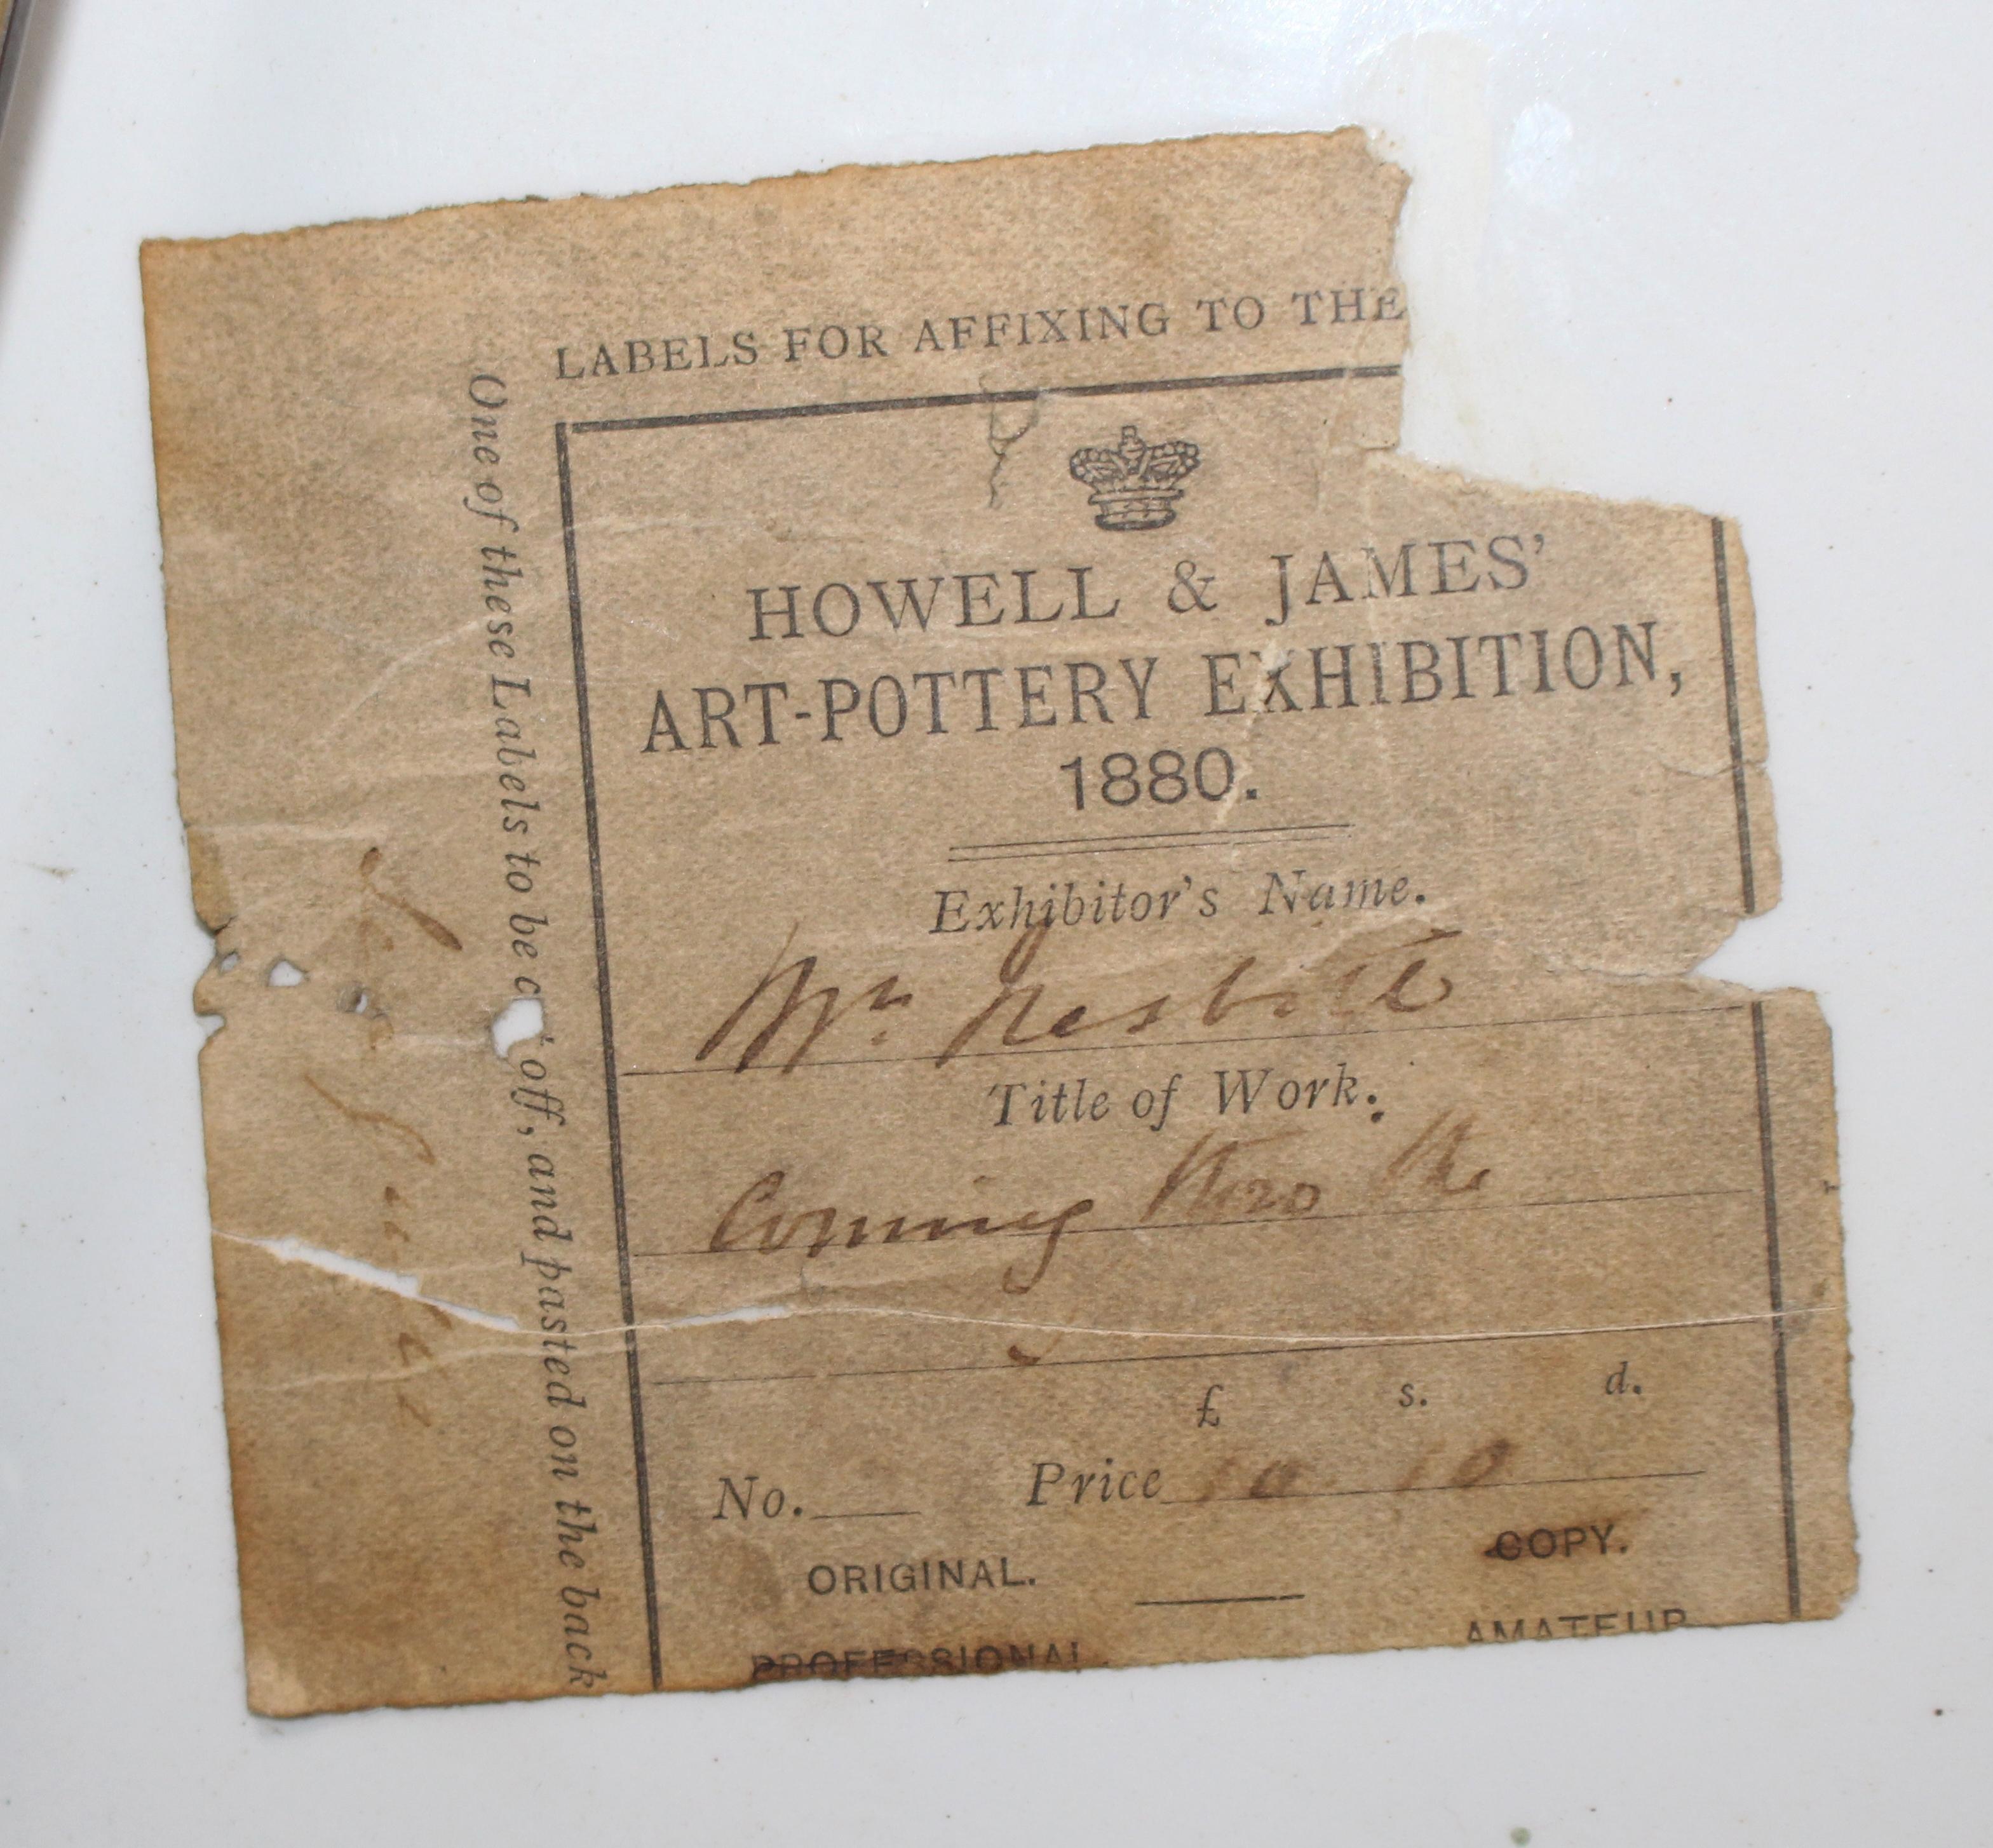 LABELS FOR AFFIXING TO THE
HOWELL & JAMES'
ART-POTTERY EXHIBITION,
1880.
Exhibitor's Name.
Nesbitt
Title of Work.
Coming thro the
£ s. d.
No. Price 10 10
ORIGINAL. COPY.
PROFESSIONAL. AMATEUR
One of these Labels to be c off, and pasted on the back